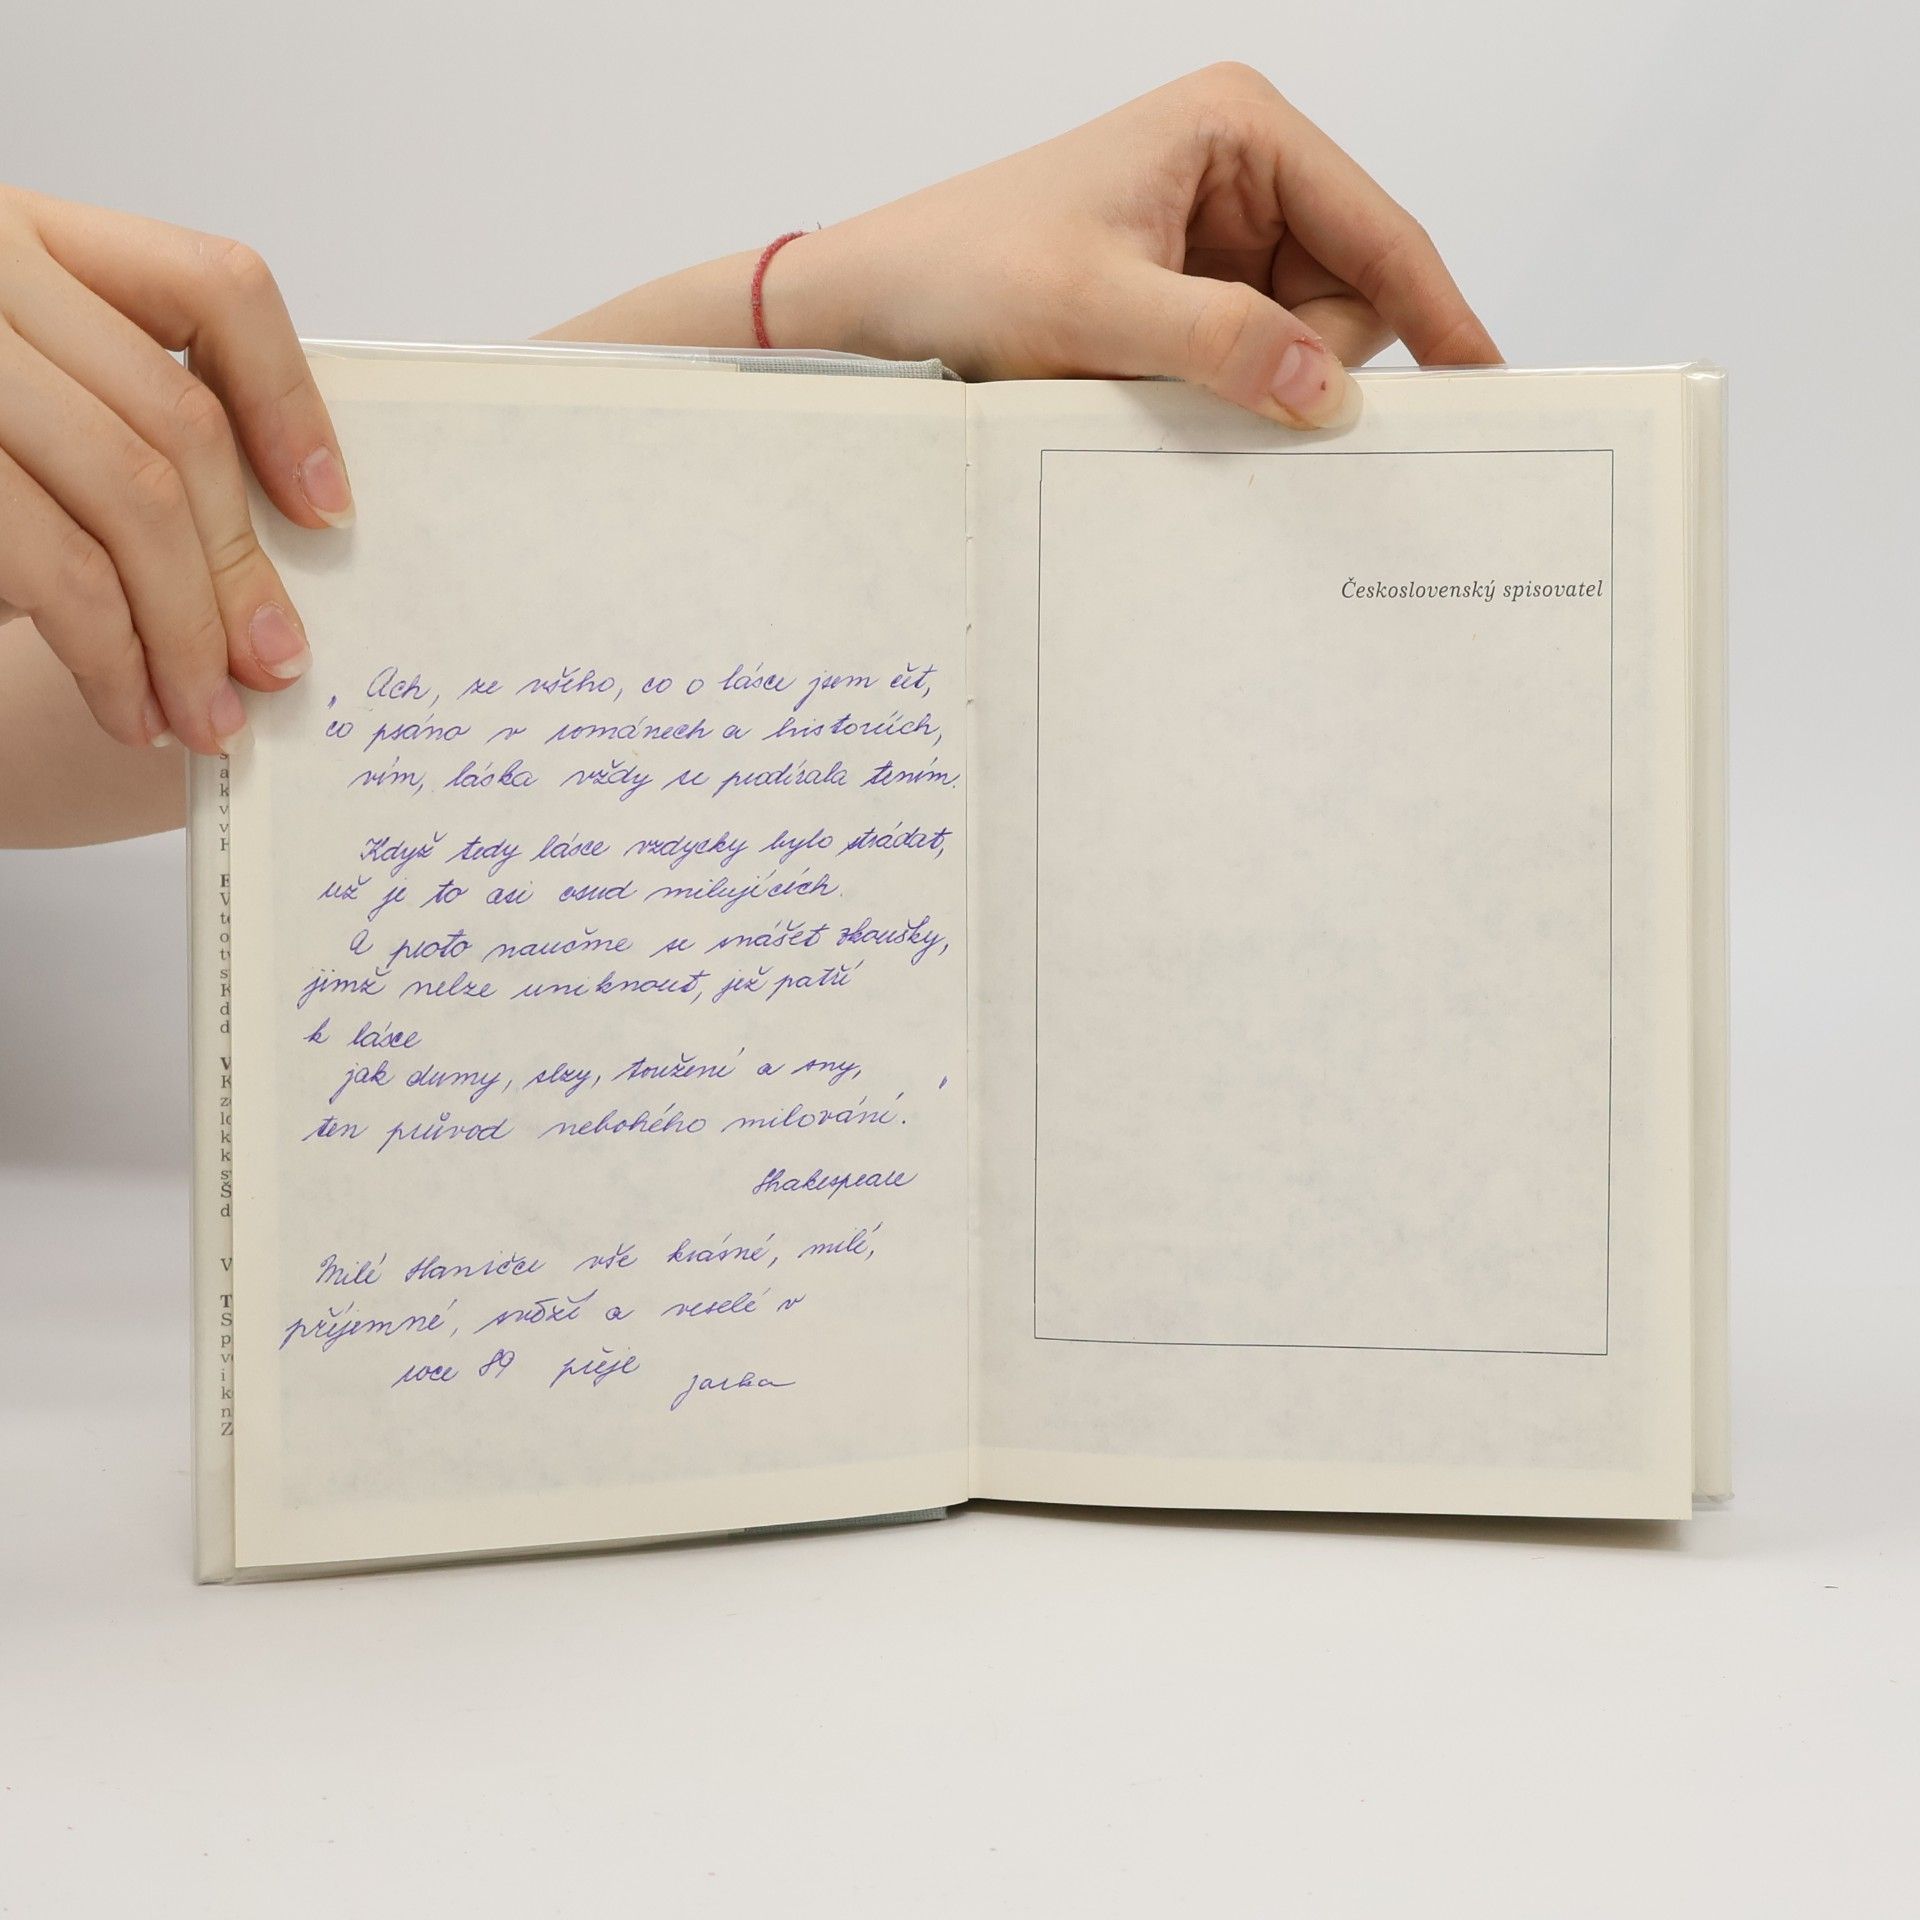 „Ach, ze všeho, co o lásce jsem čet,
co psáno v románech a historiích,
vím, láska vždy se prodírala trním.
Když tedy lásce vždycky bylo strádat,
už je to asi osud milujících.
A proto naučme se snášet zkoušky,
jimž nelze uniknout, jež patří
k lásce
jak dumy, slzy, toužení a sny,
ten průvod nebohého milování."
Shakespeare
Milé Haničce vše krásné, milé,
příjemné, svěží a veselé v
roce 89 přeje Jarka
Československý spisovatel